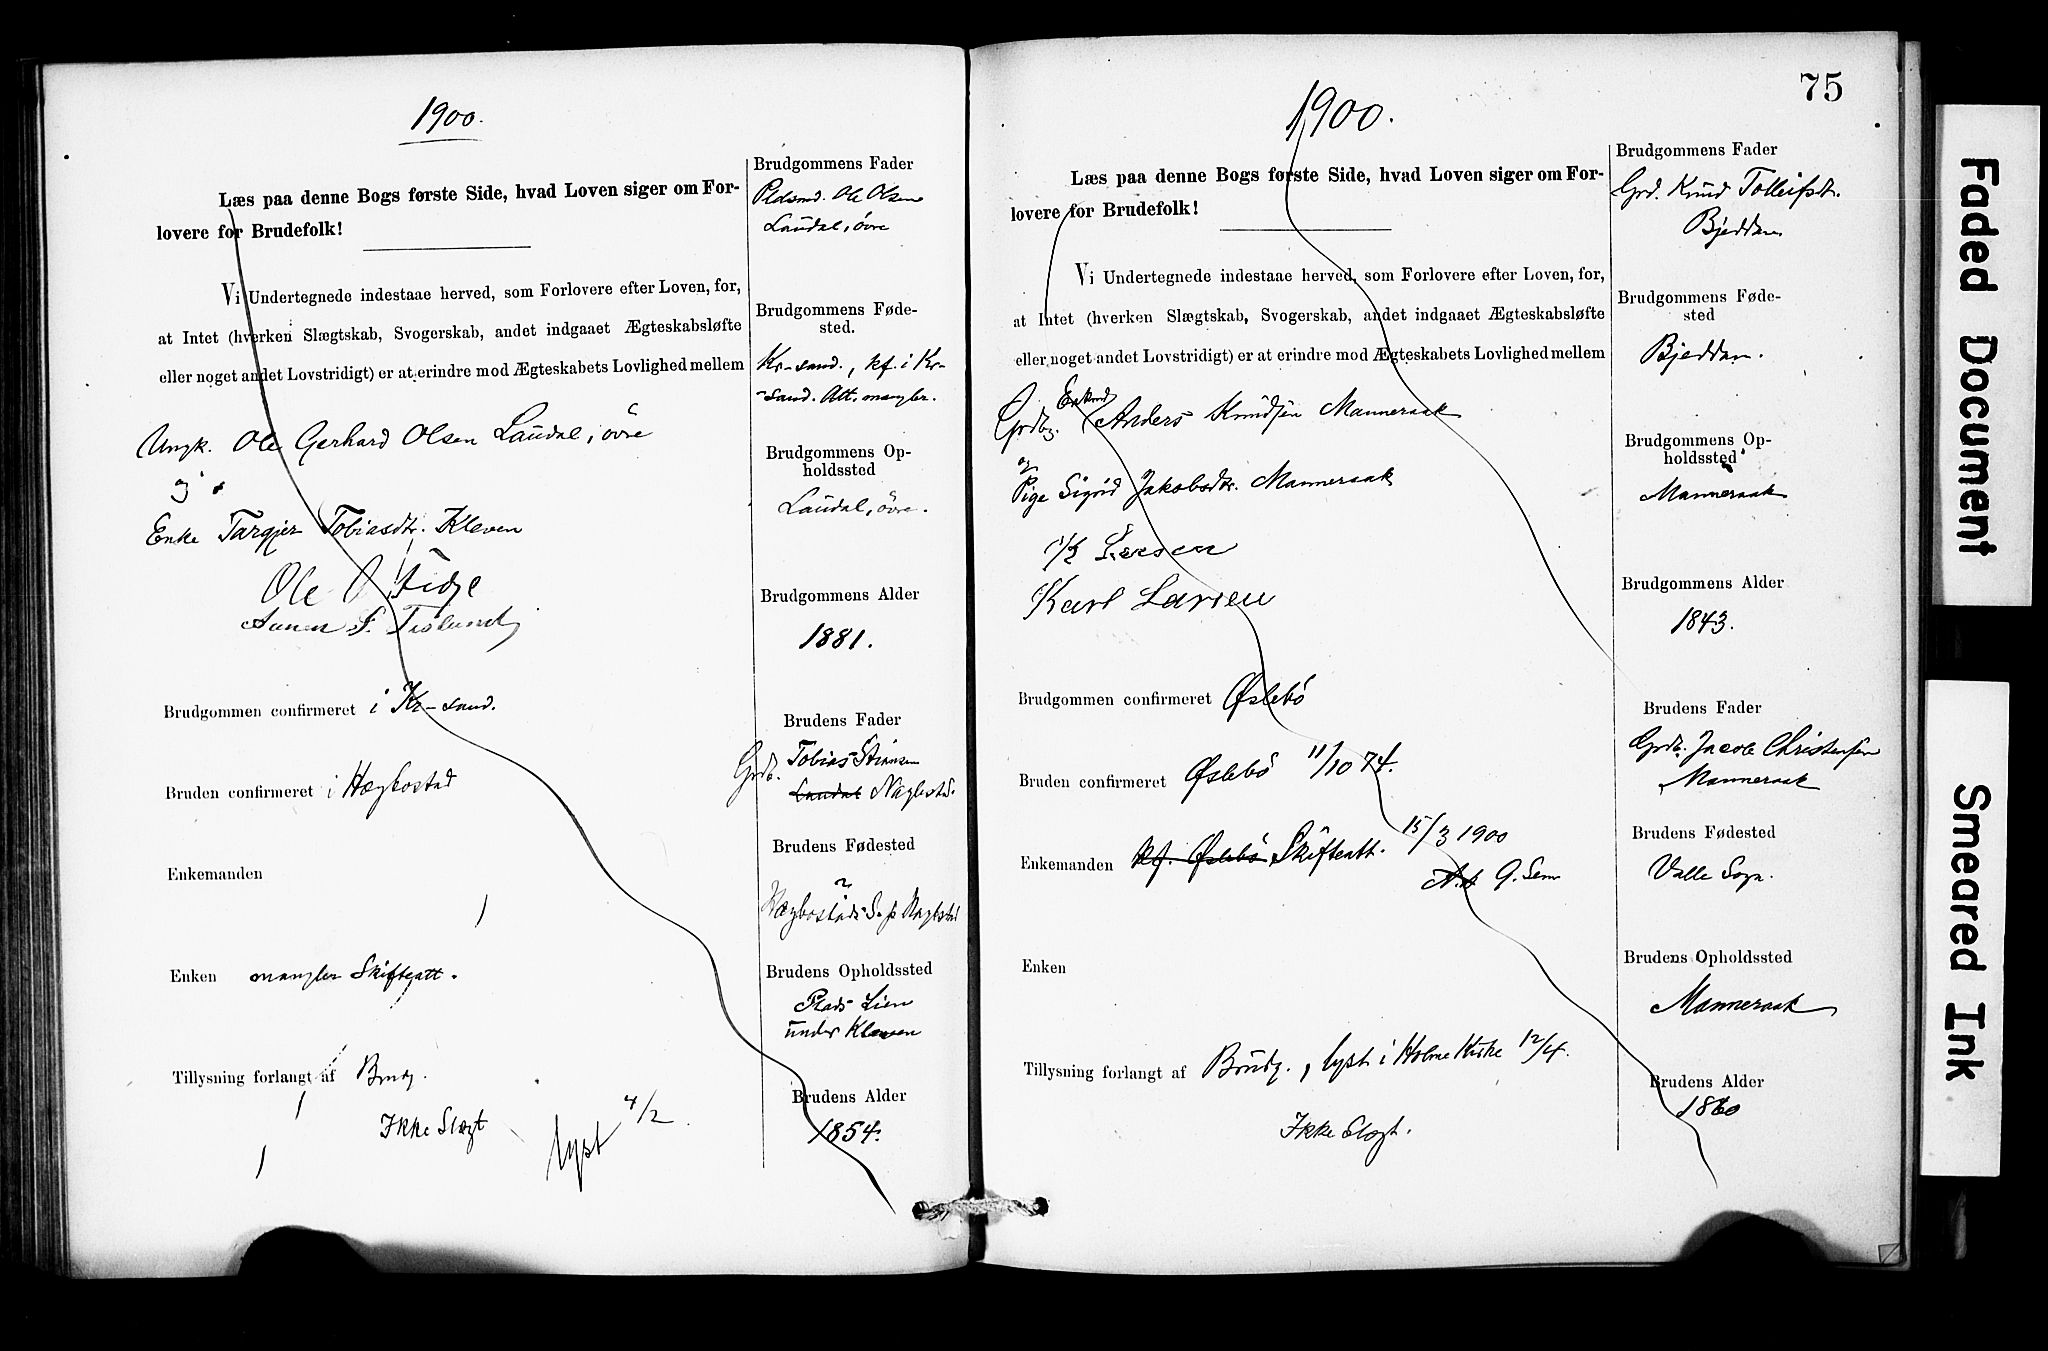 1900.
Læs paa denne Bogs første Side, hvad Loven siger om For-
lovere for Brudefolk!
Vi Undertegnede indestaae herved, som Forlovere efter Loven, for,
at Intet (hverken Slægtskab, Svogerskab, andet indgaaet Ægteskabsløfte
eller noget andet Lovstridigt) er at erindre mod Ægteskabets Lovlighed mellem
Ungk. Ole Gerhard Olsen Laudal, øvre
og
Enke Targjer Tobiasdtr. Kleven
Ole O Fidje
Brudgommen confirmeret i Kr-sand.
Bruden confirmeret i Hægbostad
Enkemanden
Enken mangler Skifteatt.
Tillysning forlangt af Brudg.
Ikke Slægt
lyst 4/2
Brudgommens Fader
Pldsmd. Ole Olsen
Laudal, øvre
Brudgommens Føde-
sted.
Kr-sand., kf. i Kr-
-sand. Att. mangler.
Brudgommens Op-
holdssted
Laudal, øvre.
Brudgommens Alder
1881.
Brudens Fader
Grdb. Tobias Stiansen
Laudal Naglestad.
Brudens Fødested
Hægbostad
Brudens Opholdssted
Plads Lien
under Kleven
Brudens Alder
1854.
75
1900.
Læs paa denne Bogs første Side, hvad Loven siger om For-
lovere for Brudefolk!
Vi Undertegnede indestaae herved, som Forlovere efter Loven, for,
at Intet (hverken Slægtskab, Svogerskab, andet indgaaet Ægteskabsløfte
eller noget andet Lovstridigt) er at erindre mod Ægteskabets Lovlighed mellem
Enkmd
Grdbg. Anders Knudsen Manneraak
og
Pige Sigrid Jakobsdtr. Manneraak
Larsen
Karl Larsen
Brudgommen confirmeret Øslebø
Bruden confirmeret Øslebø 11/10 74.
Enkemanden kf. Øslebø Skifteatt. 15/3 1900
Enken
Tillysning forlangt af Brudg., lyst i Holme Kirke 12/4.
Ikke Slægt.
Brudgommens Fader
Grd. Knud Tolleifstr.
Bjeddan
Brudgommens Føde-
sted
Bjeddan.
Brudgommens Op-
holdssted
Manneraak
Brudgommens Alder
1843.
Brudens Fader
Grdb. Jacob Christensen
Manneraak
Brudens Fødested
Valle Sogn.
Brudens Opholdssted
Manneraak
Brudens Alder
1860
Faded Document
Smeared Ink